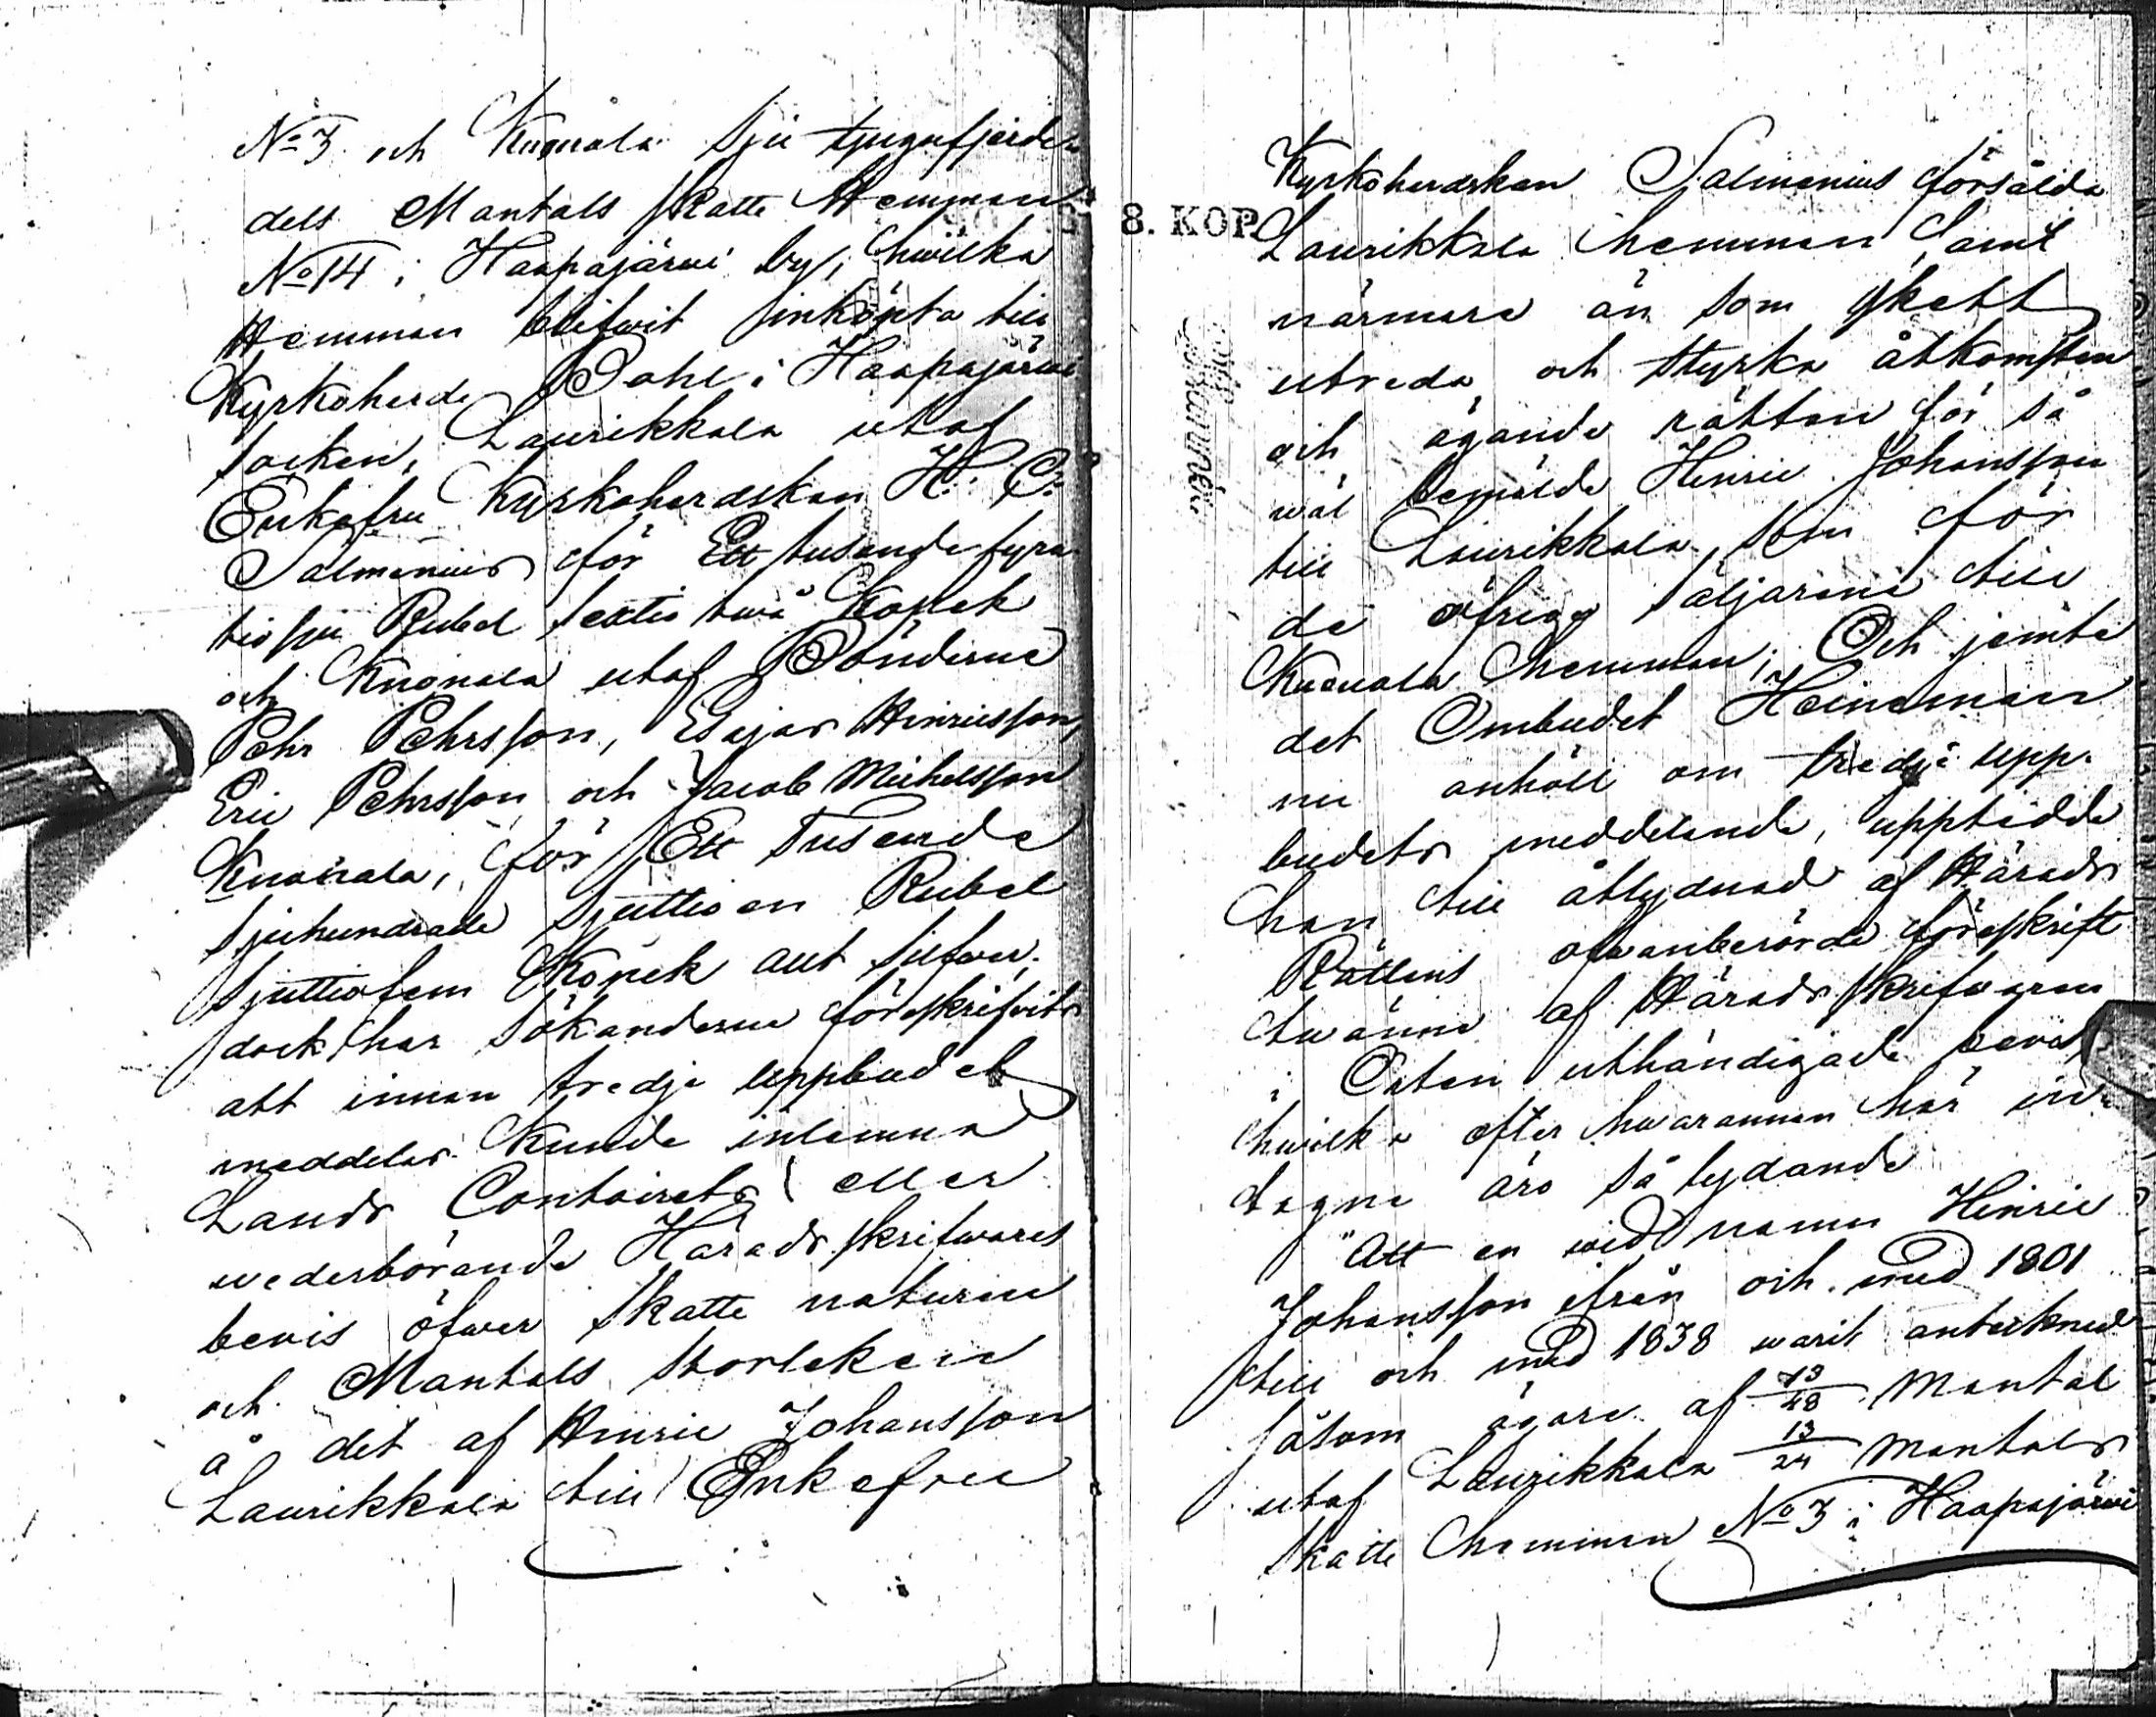 No 3. och Kuonala Sju tjugufjerde
dels Mantals skatte Hemman
No 14 i Haapajärwi by, hwilka
Hemman blifwit inköpta till
Kyrkoherde Bohl i Haapajärwi
socken, Laurikkala utaf
Enkefru Kyrkoherdskan H. C.
Salmenius för Ett tusende fyra
tio sju Rubel sextio twå Kopek
och Kuonala utaf Bönderne
Pehr Pehrsson, Esajas Hinricsson,
Eric Pehrsson och Jacob Michelsson
Kuonala, för Ett Tusende
Sjuhundrade Sjuttio en Rubel
Sjuttiofem Kopek allt silfwer,
dock har sökanderne föreskrifvits
att innan tredje uppbudet
meddelas kunde inlemna
Lands Contoirets eller
wederbörande Härads skrifwares
bevis öfwer skatte naturen
och Mantals storleken
å det af Hinric Johansson
Laurikkala till Enkefru
8. KOP.
Kyrkoherdskan Salmenius försålda
Laurikkala hemman, Samt
närmare än som skett
utreda och styrka åtkomsten
och ägande rätten för så
wäl bemälde Hinric Johansson
till Laurikkala, som för
de öfrige säljarene till
Kuonala hemman; Och jemte
det Ombudet Heineman
nu anhöll om tredje upp-
budets meddelande, uppteedde
han till åtlydnad af Härads
Rättens ofwanberörde föreskrift
twänne af Härads skrifwaren
i Orten uthändigade bevis
hwilka efter hwarannan här in-
tagne äro så lydande
"Att en wid namn Hinric
Johansson ifrån och med 1801
till och med 1838 warit antecknad
såsom ägare af 13/48 Mantal
utaf Laurikkala 13/24 Mantals
Skatte hemman No 3 i Haapajärwi